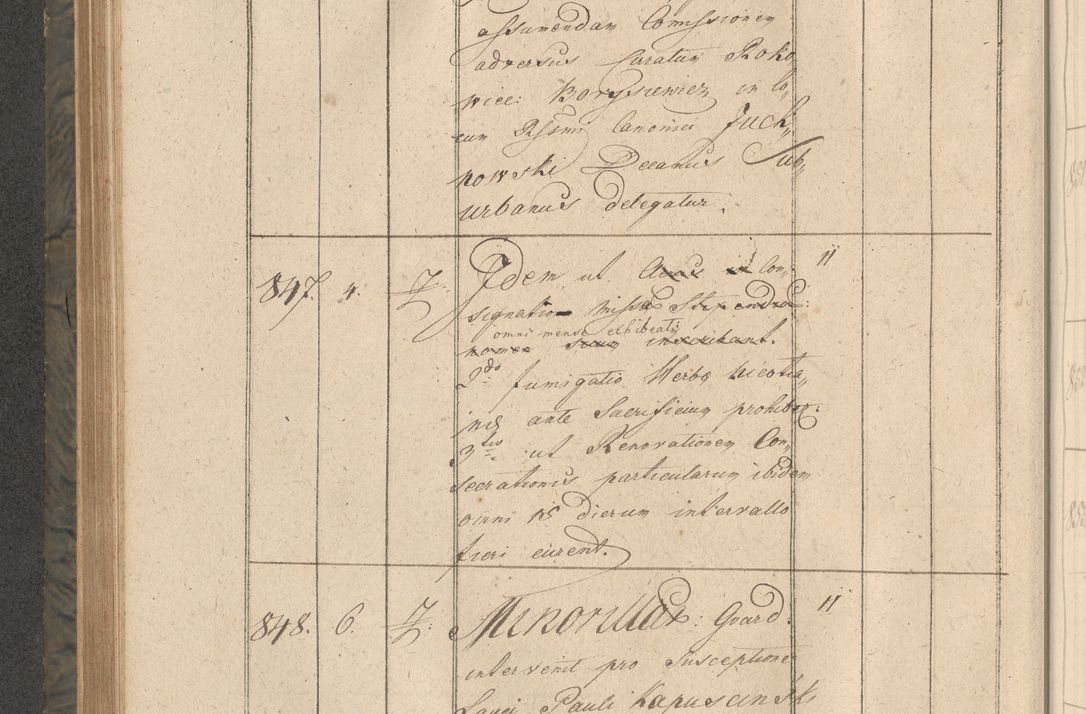 assumendam Comissionem
adversus Curatum Roko„
wice: Borysiewicz in lo„
cum Rssmi Canonici Juch„
nowski Decanus Sub„
urbanus delegatur.
847. 4. 7 Idem, ut in Con„ 11
signatio missa Stipendio:
omni mense exhibeatur
nomen suum inscribant.
2do fumigatio Herbæ nicotia„
næ ante Sacrificium prohibet:
3tio ut Renovationem Con„
secrationis particularum ibidem
omni 15 dierum intervallo
fieri curent.
848. 6. 7 Minoritar: Guard: 11
intervenit pro Susceptione
Laici Pauli Kapuscinski